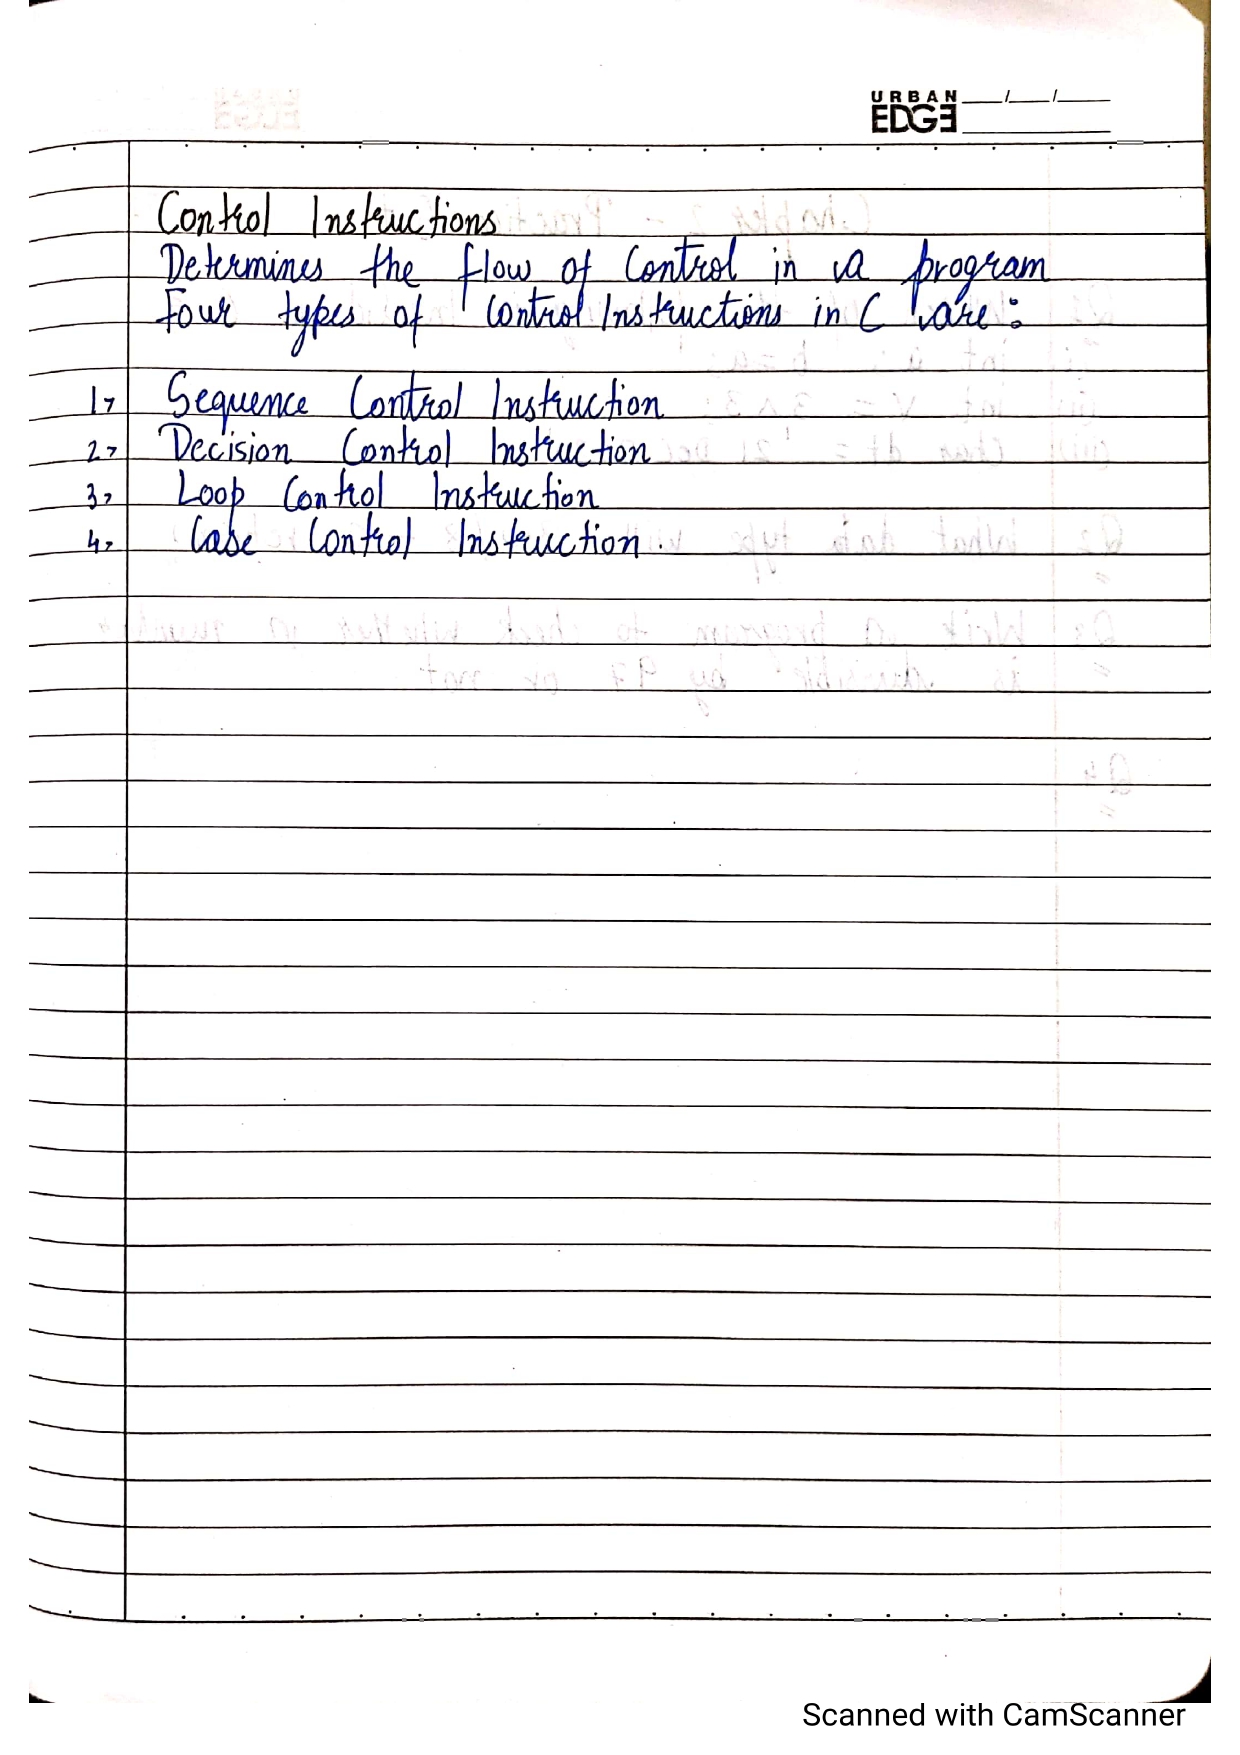 URBAN
EDGE
Control Instructions
Determines the flow of Control in a program
Four types of Control Instructions in C are:
1> Sequence Control Instruction
2> Decision Control Instruction
3> Loop Control Instruction
4> Case Control Instruction.
Scanned with CamScanner